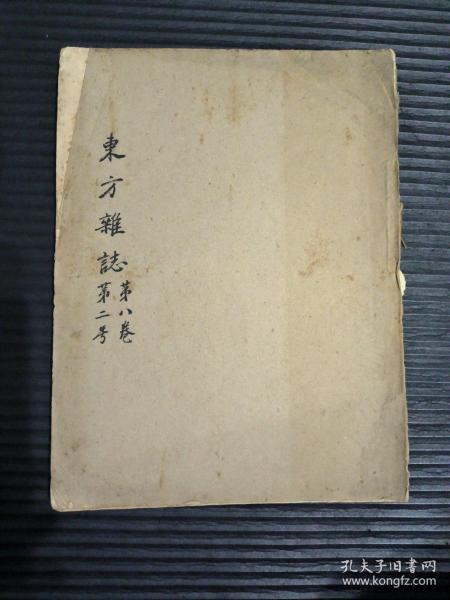 東方雜誌
第八卷
第二号
孔夫子旧书网
www.kongfz.com